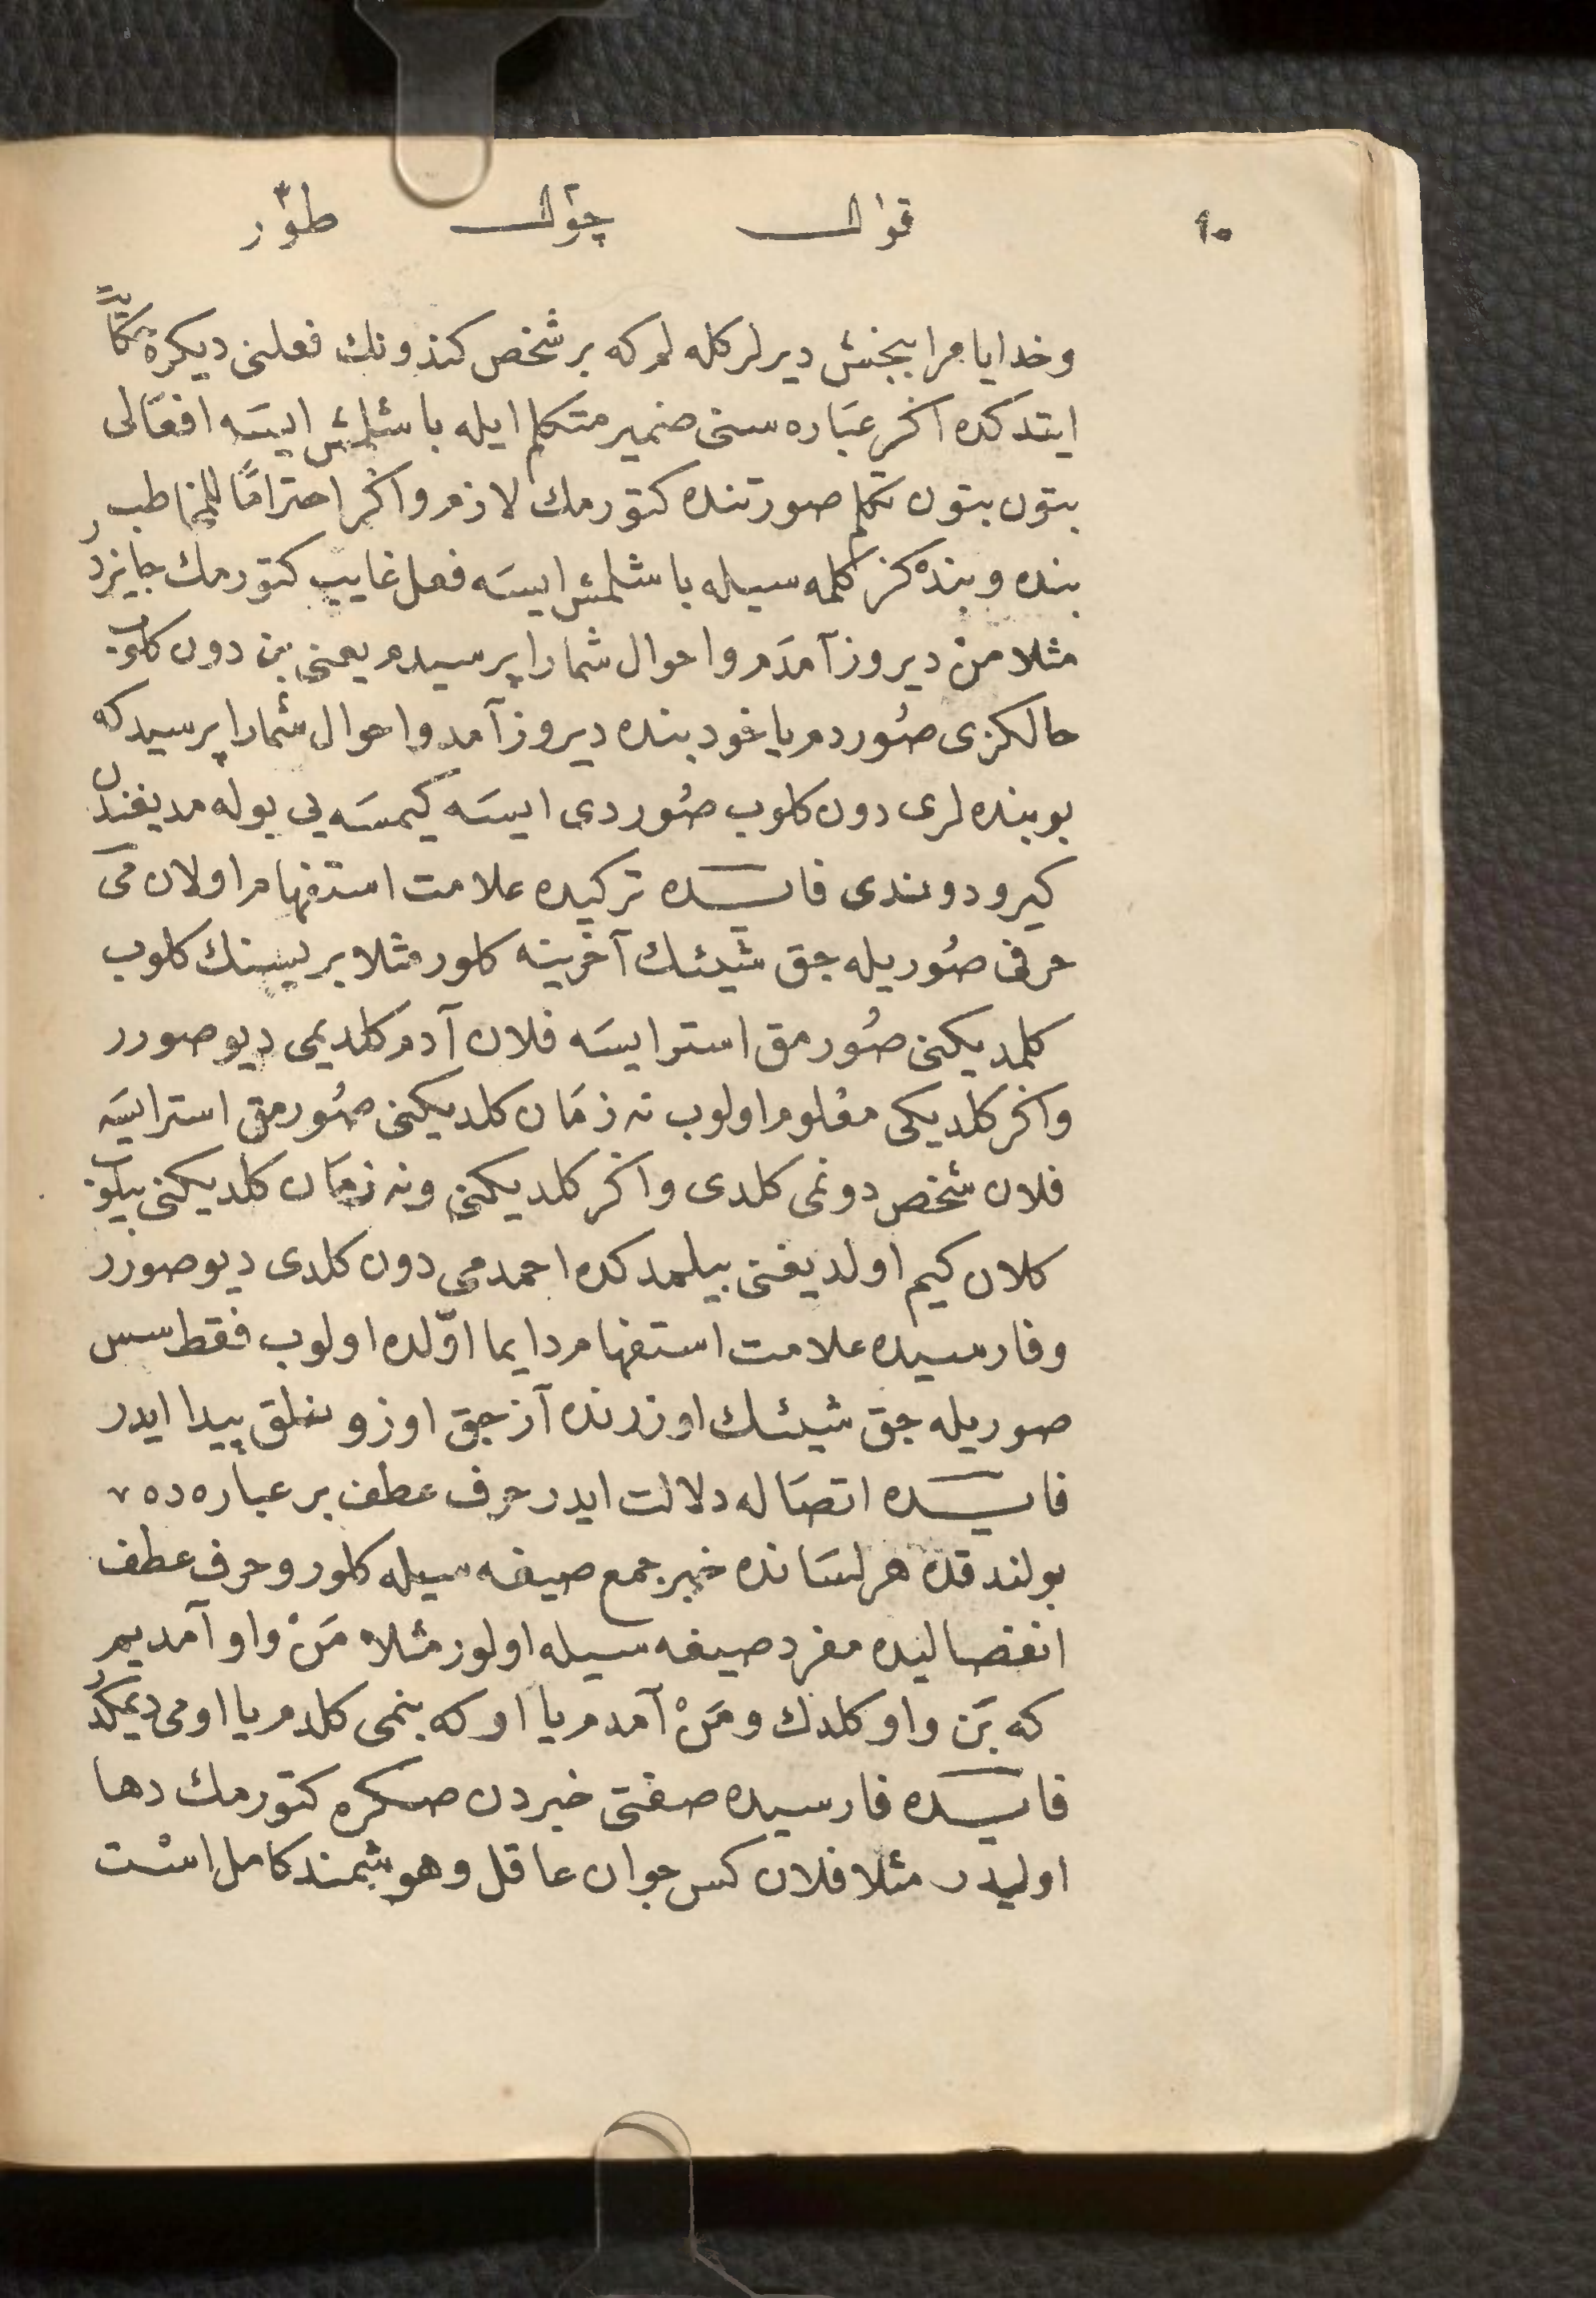 ٩٠ قوال چوال طوار
وخدایا مرا ببخش دیرلر کله لم که بر شخص کندونك فعلنی دیکره حكایةً
ایتدکده اکر عباره سنی ضمیر متکلم ایله باشلمش ایسه افعالی
بتون بتون تکلم صورتنده کتورمك لازم واکر احتراماً للمخاطب
بنده وبنده کز کلمه سیله باشلمش ایسه فعل غایب کتورمك جایزدر
مثلا من دیروز آمدم واحوال شمارا پرسیدم یعنی بن دون کلوب
حالکزی صُوردم یاخود بنده دیروز آمد واحوال شمارا پرسید که
بو بنده لری دون کلوب صُوردی ایسه کیمسه یی بوله مدیغندن
کیرو دوندی فایده ترکیده علامت استفهام اولان می
حرفی صُوریله جق شیئك آخرینه کلور مثلا بریسنك کلوب
کلمدیکنی صُورمق استر ایسه فلان آدم کلدیمی دیو صورر
واکر کلدیکی معلوم اولوب نه زمان کلدیکنی صُورمق استر ایسه
فلان شخص دونمی کلدی واکر کلدیکنی ونه زمان کلدیکنی بیلوب
کلان کیم اولدیغنی بیلمدکده احمدمی دون کلدی دیو صورر
وفارسیده علامت استفهام دایما اوّلده اولوب فقط سس
صوریله جق شیئك اوزرنده آزجق اوزونلق پیدا ایدر
فایده اتصاله دلالت ایدر حرف عطف بر عباره ده
بولندقده هر لسانده خبر جمع صیغه سیله کلور وحرف عطف
انفصالیده مفرد صیغه سیله اولور مثلا مَنْ واو آمدیم
که بَن واو کلدك ومَنْ آمدم یا او که بنمی کلدم یا اومی دیمکدر
فایده فارسیده صفتی خبردن صکره کتورمك دها
اولیدر مثلا فلان کس جوان عاقل وهوشمند کامل اسْت